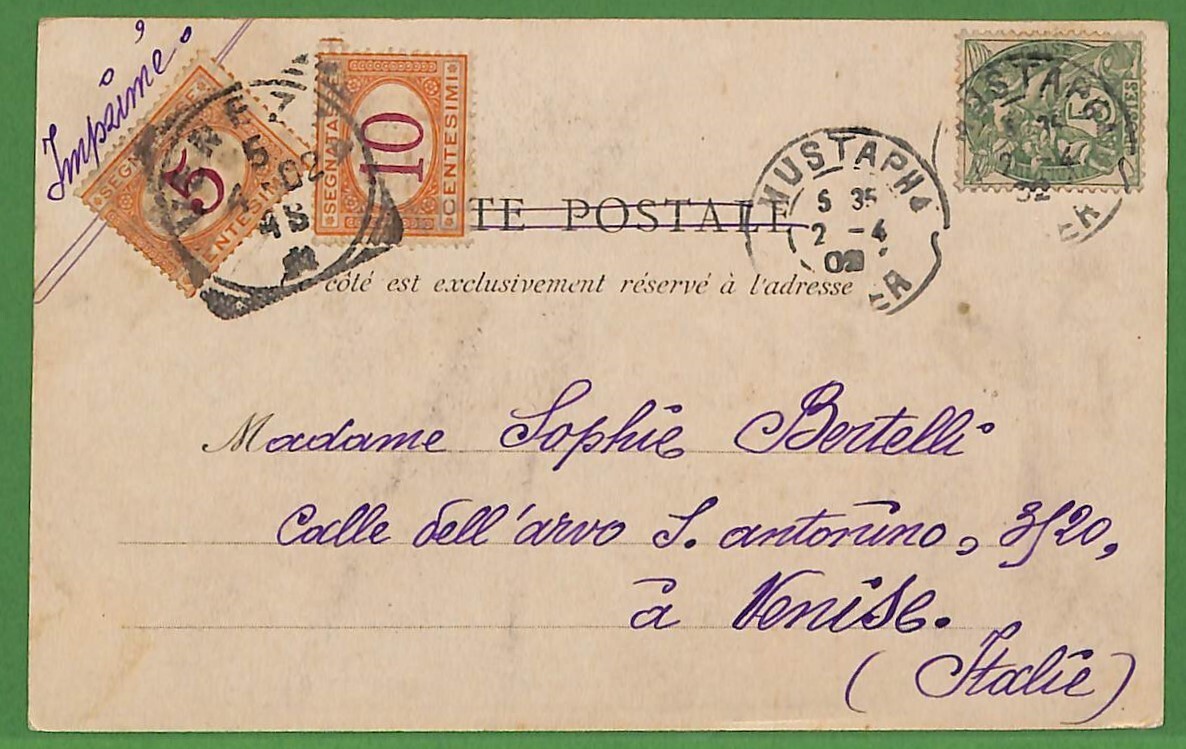 Imprimé.
5
SEGNATASSE
CENTESIMI
10
SEGNATASSE
CENTESIMI
TE POSTALE
MUSTAPHA
5 35
2 - 4
02
ER
MUSTAPHA
35
2 4
02
ER
5
POSTES
côté est exclusivement réservé à l'adresse
Madame Sophie Bertelli
Calle dell'arvo S. antonino, 3520,
à Venise.
(Italie)